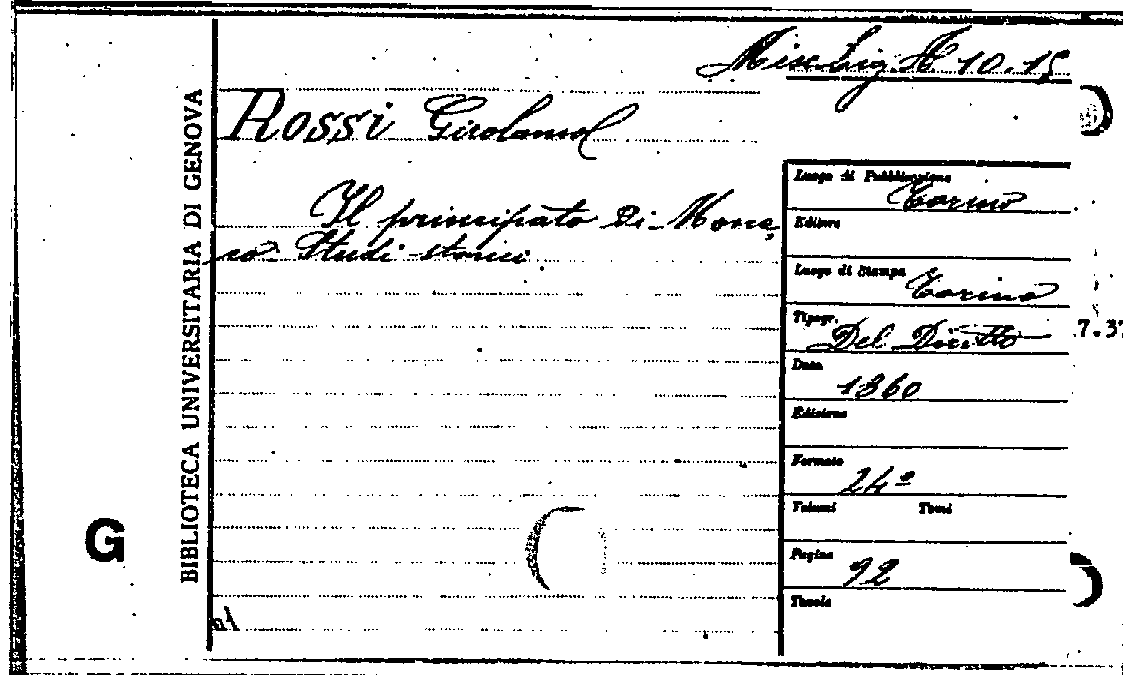 Misc. Lig. A 10.15
Rossi Girolamo
Il principato di Mona
co. Studi storici
BIBLIOTECA UNIVERSITARIA DI GENOVA
G
Luogo di Pubblicazione Torino
Editore
Luogo di Stampa Torino
Tipogr. Del Diritto
7.37
Data 1860
Edizione
Formato 24º
Volumi Tomi
Pagine 92
Tavole